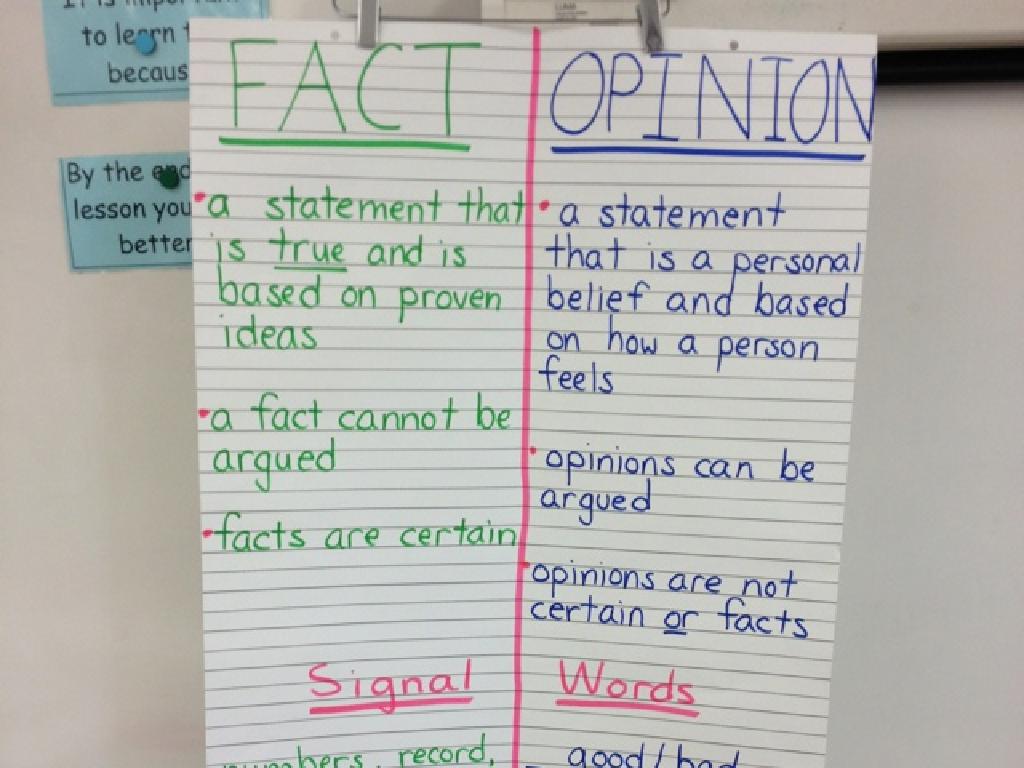 to learn
becaus
By the end
lesson you
better
FACT
• a statement that
is true and is
based on proven
ideas
• a fact cannot be
argued
• facts are certain
OPINION
• a statement
that is a personal
belief and based
on how a person
feels
• opinions can be
argued
• opinions are not
certain or facts
Signal Words
numbers, record,
good/bad